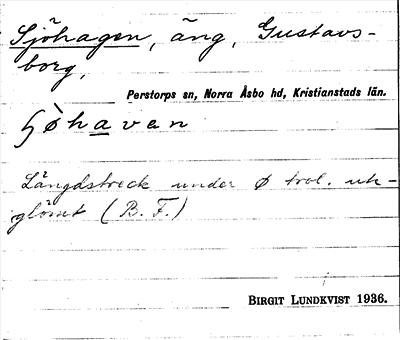 Sjöhagen, äng, Gustavs-
borg,
Perstorps sn, Norra Åsbo hd, Kristianstads län.
ʃøhavan
Längdstreck under ø trol. ute-
glömt (B. F.)
BIRGIT LUNDKVIST 1936.